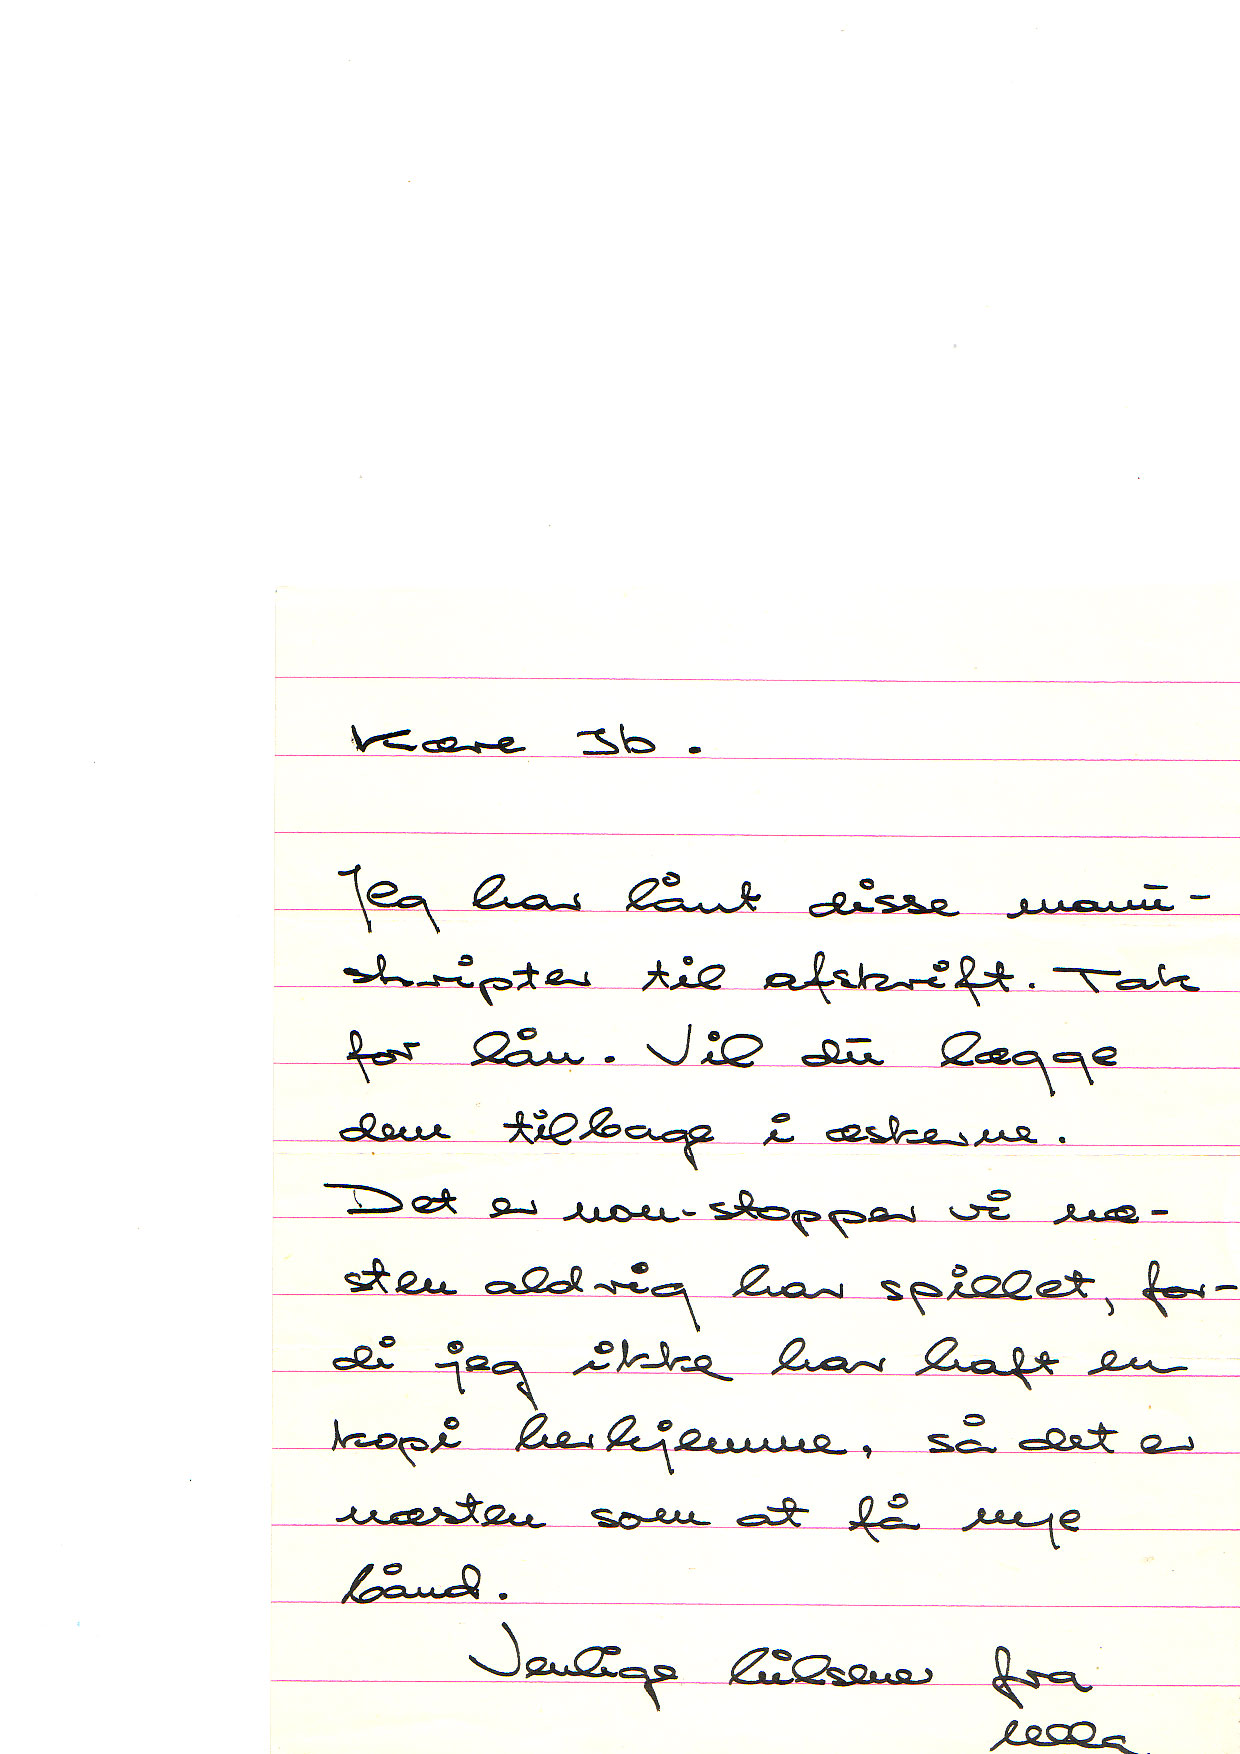 Kære Ib.
Jeg har lånt disse manu-
skripter til afskrift. Tak
for lån. Vil du lægge
dem tilbage i æskerne.
Det er non-stopper vi næ-
sten aldrig har spillet, for-
di jeg ikke har haft en
kopi herhjemme, så det er
næsten som at få nye
bånd.
Venlige hilsener fra
Ulla.